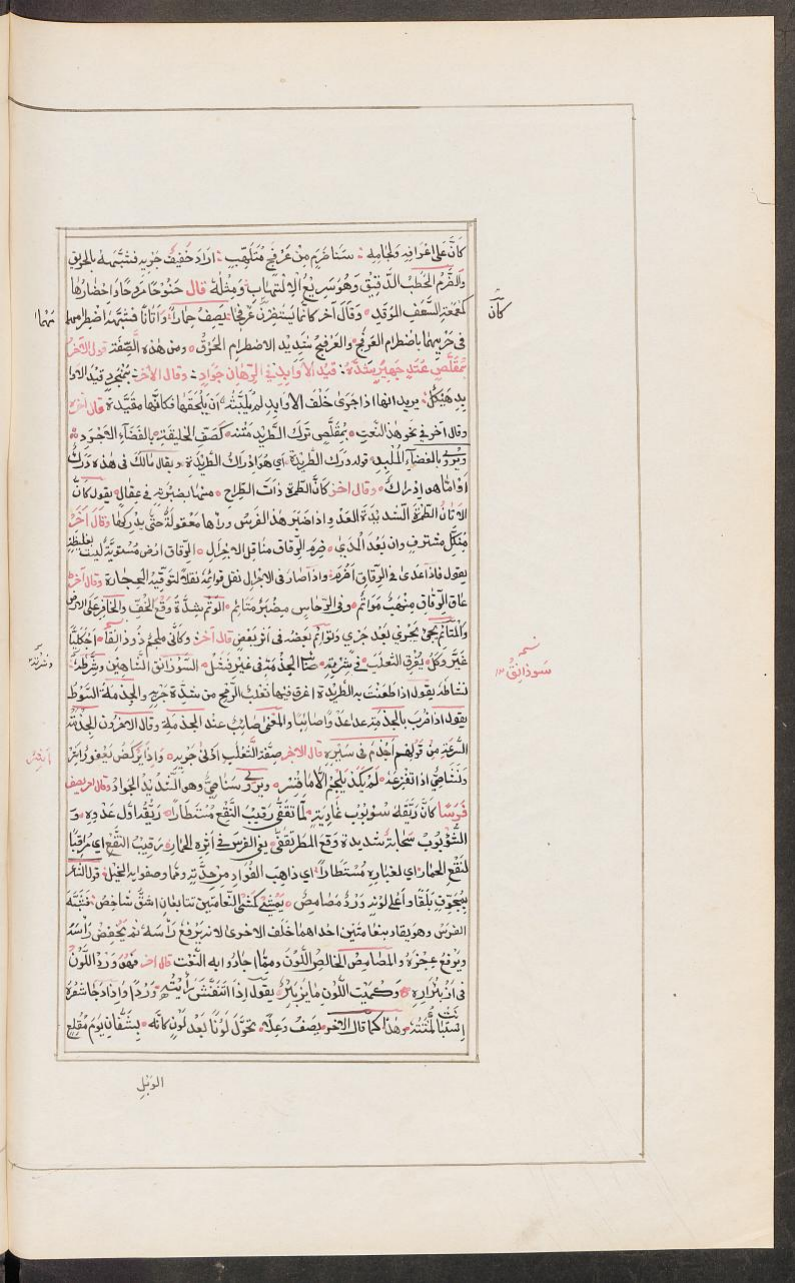 كَأنَّ على اعْرافِهِ ولجامِهِ : سَنا ضَرَمٍ مِنْ عَرْفَجٍ مُتَلَهِّبِ : ارَادَ حَفِيفَ جَرْيِهِ فشبّهه بالحريق
والضَّرَمُ الحَطَبُ الدَّقيقُ وَهُوَ سَرِيعُ الاِلْتِهابِ وَمِثْلُهُ قال جَمُوحًا مَرُوحًا وَاحْضَارُهَا
كَمَعْمَعَةِ السَّعَفِ المُوقَدِ وَقَالَ آخر كانّما يَسْتَضْرِمَانِ عَرْفَجًا يَصِفُ حِمَارًا وَأَتَانًا فشبّه اضْطِرامهما
في جَرْيِهِما باضْطِرام العَرْفَجِ والعَرْفَجُ شَدِيدُ الاضطِرامِ الحَرِقُ ومن هذه الصِّفَة قول الآخر
بمُقَلَّصٍ عَتَدٍ جَهِيزٍ شَدُّهُ : قَيْدِ الأوَابِدِ فِي الرِّهَانِ جَوَادِ : وقال الآخر بمُنْجَرِدٍ قَيْدِ الاوا
بِدِ هَيْكَلِ يريد انّها اذا جَرَى خَلْفَ الأَوابِدِ لم يُلَبِّثْهُ أنْ يَلْحَقَها فكأنّها مقيّدة
وقال آخر في نحو هذا النَّعتِ بمُقَلَّصٍ تَرَكَ الطَّرِيد مَتْنه كصَفَا الخَلِيقَةِ بالفَضَاءِ الأجْرَدِ
ويُرْوَى بالفضاءِ المُلْبِدِ قوله دَرَكِ الطَّرِيدَةِ اي هُوَ إدْراكُ الطَّرِيْدَةِ ويقال مالَكَ في هذه دَرَكٌ
وقال آخر كَأنَّ الطِّمِرَّةَ ذاتَ الطِّماحِ منها بضَبْرَتِه في عِقَالِ يقول كأنَّ
الاتانَ الطِّمِرَّةَ الشديدةَ العَدْوِ اذا ضَبَرَ هذا الفَرَسُ وراءها مَعقولةٌ حتى يدركها وقَالَ آخَرُ
مُنَكِّلٍ مشترفٍ وان بَعُدَ المَدَى ضَرِمِ الرِّقاقِ مُناقِلِ الاجرالِ الرِّقاق ارضٌ مُسْتويَةٌ ليست بغليظةٍ
يقول فاذا عَدَى في الرِّقاقِ اضْطَرَمَ واذا صَارَ في الاجْرالِ نقل قوائِمُه نَقلًا لتوقّيهِ الحِجَارةَ وقال آخر
عافي الرِّقاقِ مِنْهَبٌ مُوَاثِمُ وفي الدَّهَاسِ مِضْبَرٌ مُتَائِمُ الوَثْمُ شِدَّةُ وَقْعِ الخُفِّ والحَافِر على الارض
والمُتَائِمُ يجيءُ بجَرْيٍ بَعْدَ جَرْيٍ وتَوْأَم بَعْضُه في أثرِ بَعْضٍ قال آخر وكأنّي مُلْجِمٌ
نشاطُهُ يقول اذا طَعَنْتُ به الطَّرِيدَةَ اغرقَ فيها ثَعْلَبُ الرُّمْحِ من شِدَّةِ جَرْيِهِ والجِذْمَةُ السَّوْط
يقول اذا ضُرِبَ بالجِذْمَةِ عَدَا عَدْوًا صائِبًا والمَعْنى صائِبٌ عند الجِذْمَةِ وقال الآخرون الجِذْمَةُ
السُّرْعَةُ مِنْ قولهم أَجْذَمَ في سَيْرِهِ قال الآخر صِفَةُ الثَّعْلَبِ أدْنَى جَرْيِهِ وَاذَا يُرْكَضُ يَعْفُورٌ أشِرْ
ونَشَاصِيٌّ اذا تُفْزِعُهُ لم يَكَدْ يُلْجَمُ إلّا ما قُسِرْ ويروى شناصيٌّ وهو الشَّدِيدُ الجَواد وقال آخر يصف
فَرَسًا كأنَّ رَيِّقَهُ شُؤْبُوبُ غَادِيَةٍ لمّا تَقَفَّى رَقِيبَ النَّقْعِ مُسْتَطَارَا رَيِّقُه أوّل عَدْوِهِ وَ
الشُّؤْبُوبُ سَحَابَةٌ شديدة وَقْعِ المطر تقفَّى يعني الفرسَ في أثَرِهِ الحِمار رَقِيبَ النَّقْعِ اي مُراقِبًا
لنَقْعِ الحمار اي لغُبارِهِ مُسْتَطَارًا اي ذاهِبَ الفُؤادِ مِن حِدَّتِهِ وممّا وصفوا به الخيل قول الشاعر
بمُجَوَّفٍ بَلَقًا وأَعْلَى لَوْنِهِ وَرْدٌ مُصَامِصْ يَمْشِي كَمَشْيِ نَعَامَتَيْنِ تتابعانِ اشَقُّ شاخِصْ فشبَّه
الفرسَ وهو يقاد بنعامَتَيْنِ احْداهُما خلف الاخرى لانه يَرْفَعُ رأسَهُ ثم يَخْفِضُ رَأْسَهُ
ويَرْفَعُ عجُزَهُ والمُصَامِصُ الخالِصُ اللَّوْنِ وممّا اجادُوا به النَّعْت قال آخر فَهْوَ وَرْدُ اللَّوْنِ
في ازْبِئْرارِهِ وَكُمَيْتُ اللَّوْنِ ما لَمْ يَزْبَئِرْ يقول إذا انتَفَشَ رَأيْتَهُ وَرْدًا وإذا دَجَا شَعْرُهُ
اسْتَبَانَتْ كُمْتَتُهُ وهذا كما قال الآخر يصف وَعِلًا تَحَوَّلَ لَوْنًا بَعْدَ لَوْنٍ كأنّه بِشَفَّانِ يومٍ مُقْلِعِ
الوَبْلِ
كأنّ
سَوذانِقٌ